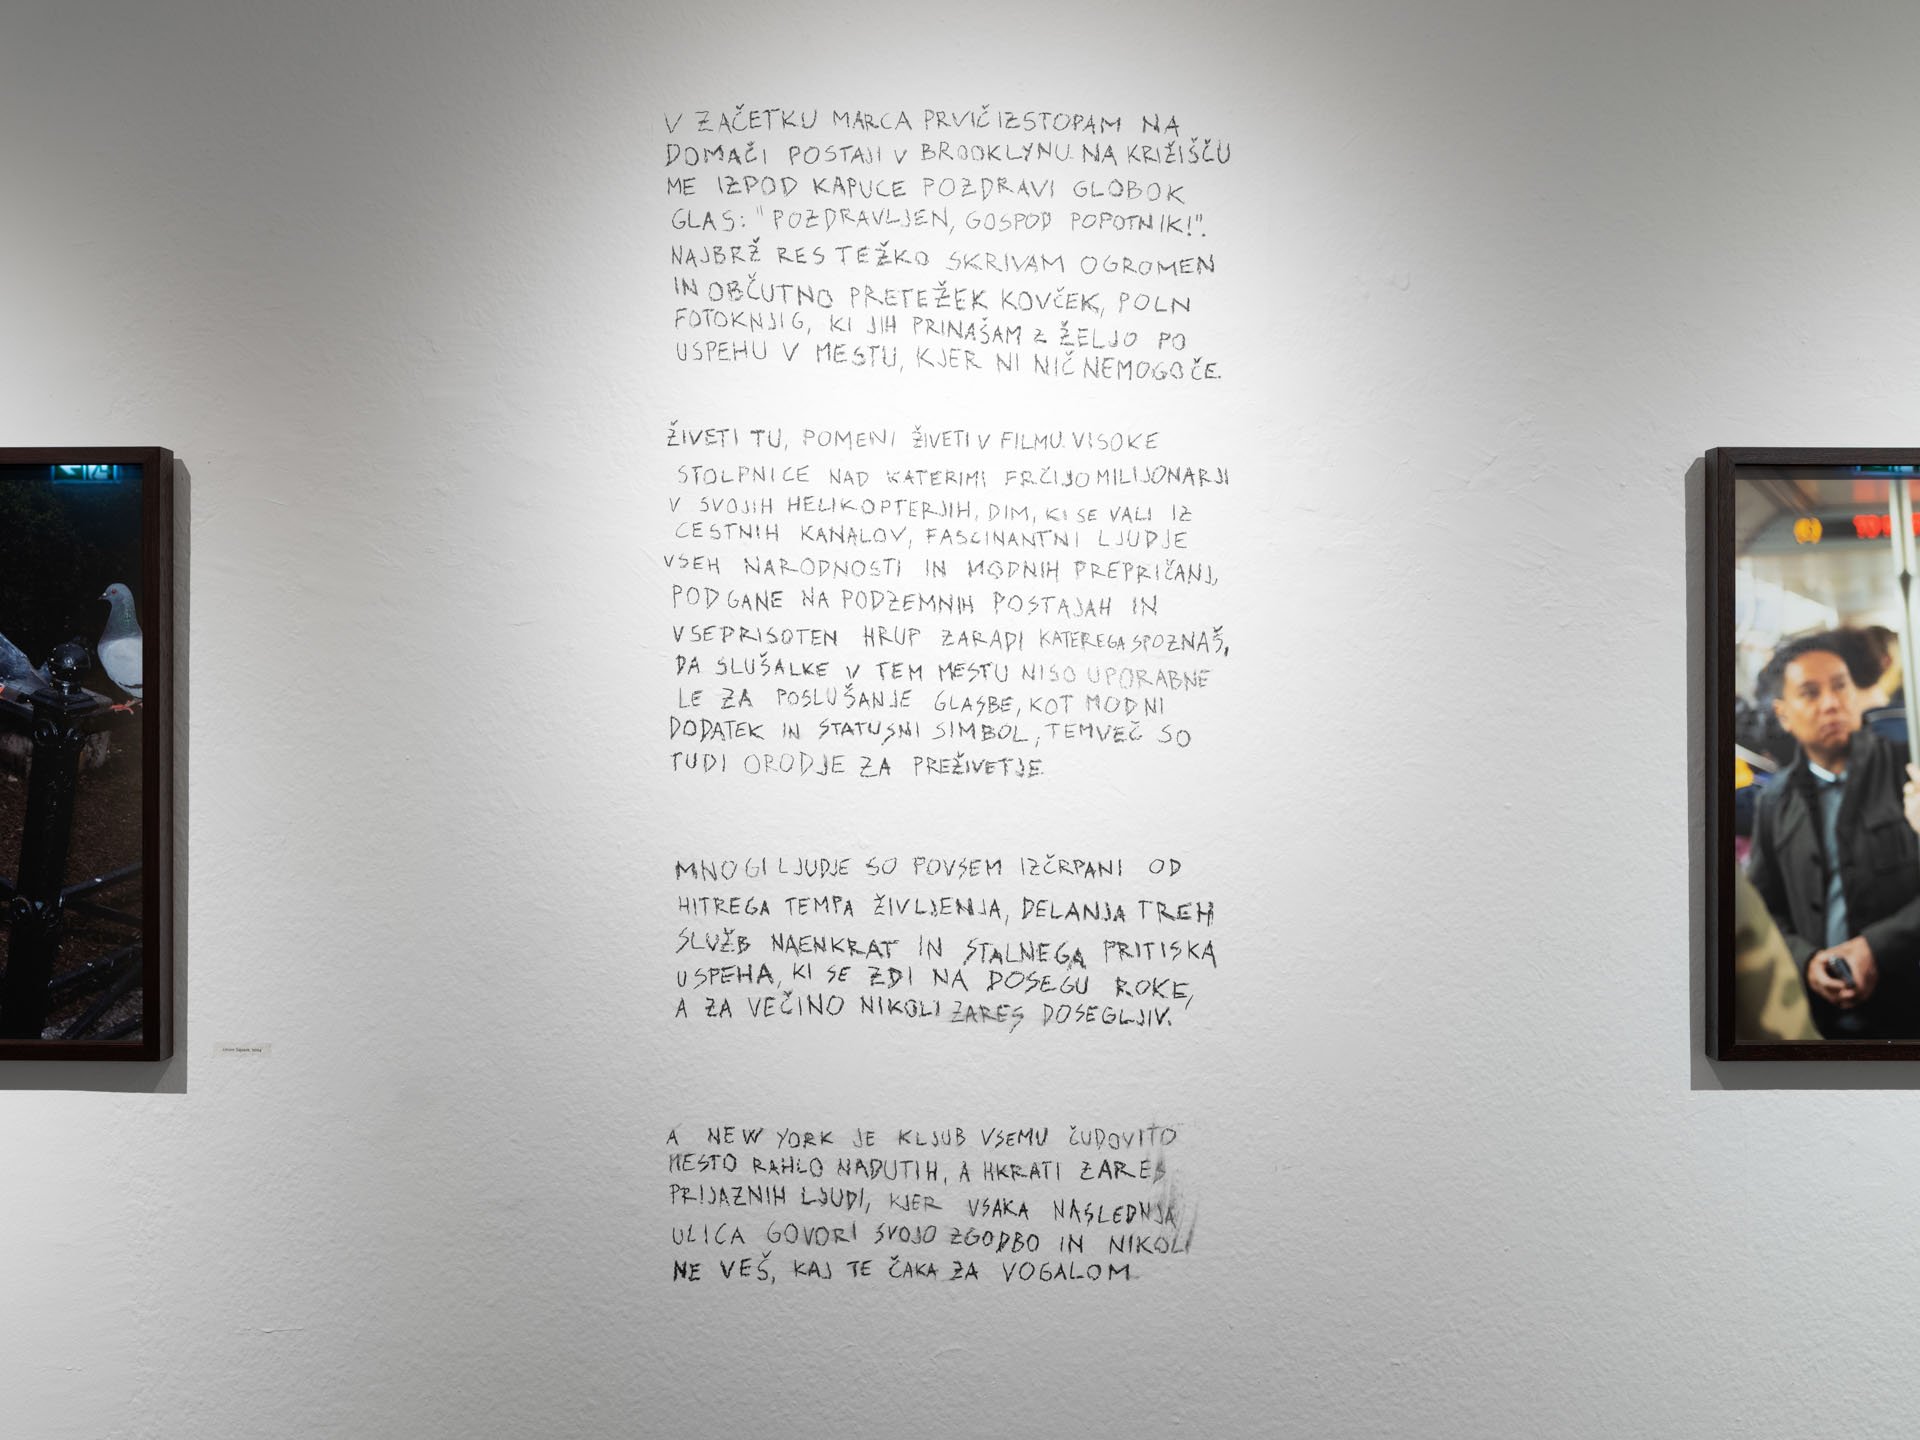 V ZAČETKU MARCA PRVIČ IZSTOPAM NA
DOMAČI POSTAJI V BROOKLYNU. NA KRIŽIŠČU
ME IZPOD KAPUCE POZDRAVI GLOBOK
GLAS: "POZDRAVLJEN, GOSPOD POPOTNIK!".
NAJBRŽ RES TEŽKO SKRIVAM OGROMEN
IN OBČUTNO PRETEŽEK KOVČEK, POLN
FOTOKNJIG, KI JIH PRINAŠAM Z ŽELJO PO
USPEHU V MESTU, KJER NI NIČ NEMOGOČE.
ŽIVETI TU, POMENI ŽIVETI V FILMU. VISOKE
STOLPNICE NAD KATERIMI FRČIJO MILIJONARJI
V SVOJIH HELIKOPTERJIH, DIM, KI SE VALI IZ
CESTNIH KANALOV, FASCINANTNI LJUDJE
VSEH NARODNOSTI IN MODNIH PREPRIČANJ,
PODGANE NA PODZEMNIH POSTAJAH IN
VSEPRISOTEN HRUP ZARADI KATEREGA SPOZNAŠ,
DA SLUŠALKE V TEM MESTU NISO UPORABNE
LE ZA POSLUŠANJE GLASBE, KOT MODNI
DODATEK IN STATUSNI SIMBOL, TEMVEČ SO
TUDI ORODJE ZA PREŽIVETJE.
MNOGI LJUDJE SO POVSEM IZČRPANI OD
HITREGA TEMPA ŽIVLJENJA, DELANJA TREH
SLUŽB NAENKRAT IN STALNEGA PRITISKA
USPEHA, KI SE ZDI NA DOSEGU ROKE,
A ZA VEČINO NIKOLI ZARES DOSEGLJIV.
A NEW YORK JE KLJUB VSEMU ČUDOVITO
MESTO RAHLO NADUTIH, A HKRATI ZARES
PRIJAZNIH LJUDI, KJER VSAKA NASLEDNJA
ULICA GOVORI SVOJO ZGODBO IN NIKOLI
NE VEŠ, KAJ TE ČAKA ZA VOGALOM.